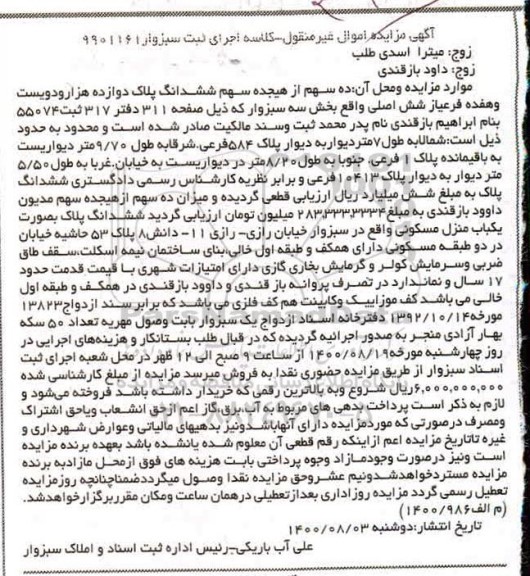 آگهی مزایده اموال غیرمنقول-کلاسه اجرای ثبت سبزوار ۹۹۰۱۱۶۱
زوج: میترا اسدی طلب
زوج: داود بازقندی
موارد مزایده ومحل آن:ده سهم از هیجده سهم ششدانگ پلاک دوازده هزارودویست
وهفده فرعیاز شش اصلی واقع بخش سه سبزوار که ذیل صفحه ۳۱۱ دفتر ۳۱۷ ثبت۵۵۰۷۴
بنام ابراهیم بازقندی نام پدر محمد ثبت وسند مالکیت صادر شده است و محدود به حدود
ذیل است:شمالابه طول۷متردیواربه دیوار پلاک ۵۸۴فرعی.شرقابه طول ۹/۷۰ متر دیواریست
به باقیمانده پلاک ۶ فرعی. جنوبا به طول۸/۲۰متر در دیواریست به خیابان.غربا به طول۵/۵۰
متر دیوار به دیوار پلاک ۱۰۴۱۳فرعی و برابر نظریه کارشناس رسمی دادگستری ششدانگ
پلاک به مبلغ شش میلیارد ریال ارزیابی قطعی گردیده و میزان ده سهم ازهیجده سهم مدیون
داوود بازقندی به مبلغ۲۸۳۳۳۳۳۳۳۴ میلیون تومان ارزیابی گردید ششدانگ پلاک بصورت
یکباب منزل مسکونی واقع در سبزوار خیابان رازی- رازی ۱۱- دانش۸ پلاک ۵۳ حاشیه خیابان
در دو طبقه مسکونی دارای همکف و طبقه اول خالی.بنای ساختمان نیمه اسکلت.سقف طاق
ضربی وسرمایش کولر و گرمایش بخاری گازی دارای امتیازات شهری با قیمت قدمت حدود
۱۷ سال و نمانداردر تصرف پروانه باز قندی و داوود بازقندی در همکف و طبقه اول
خالی می باشد کف موزاییک وکابینت هم کف فلزی می باشد که برابرسند ازدواج۱۳۸۲۳
مورخه۱۳۹۲/۱۰/۱۴ دفترخانه اسناد ازدواج یک سبزوار بابت وصول مهریه تعداد ۵۰ سکه
بهار آزادی منجر به صدور اجرائیه گردیده که در قبال طلب بستانکار و هزینه‌های اجرایی در
روز چهارشنبه مورخه۱۴۰۰/۰۸/۱۹ از ساعت ۹ صبح الی ۱۲ ظهر در محل شعبه اجرای ثبت
اسناد سبزوار از طریق مزایده حضوری نقدا به فروش میرسد مزایده از مبلغ کارشناسی شده
۶,۰۰۰,۰۰۰,۰۰۰ریال شروع وبه بالاترین رقمی که خریدار داشته باشد فروخته می‌شود و
لازم به ذکر است پرداخت بدهی های مربوط به آب،برق،گاز اعم ازحق انشعاب ویاحق اشتراک
ومصرف درصورتی که موردمزایده دارای آنهاباشدونیز بدهیهای مالیاتی وعوارض شهرداری و
غیره تاتاریخ مزایده اعم ازاینکه رقم قطعی آن معلوم شده یانشده باشد بعهده برنده مزایده
است ونیز درصورت وجودمازاد وجوه پرداختی بابت هزینه های فوق ازمحل مازادبه برنده
مزایده مستردخواهدشدونیم عشروحق مزایده نقدا وصول میگرددضمناچنانچه روزمزایده
تعطیل رسمی گردد مزایده روزاداری بعدازتعطیلی درهمان ساعت ومکان مقرربرگزارخواهدشد.
(م الف۱۴۰۰/۹۸۶)
تاریخ انتشار:دوشنبه ۱۴۰۰/۰۸/۰۳
علی آب باریکی-رئیس اداره ثبت اسناد و املاک سبزوار